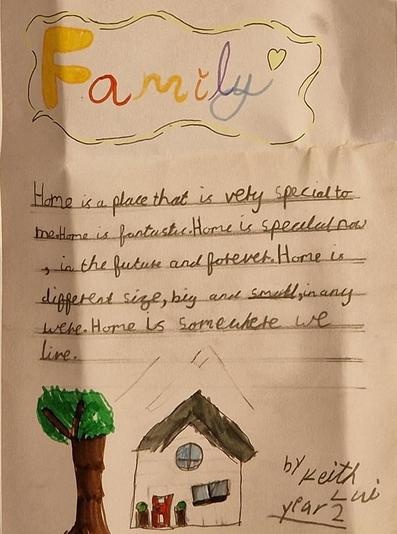 Family
Home is a place that is very special to
me.Home is fantastic.Home is specelal now
, in the future and forever.Home is
different size,big and small,in any
were.Home is somewhere we
live.
by
Keith
Lui
year 2